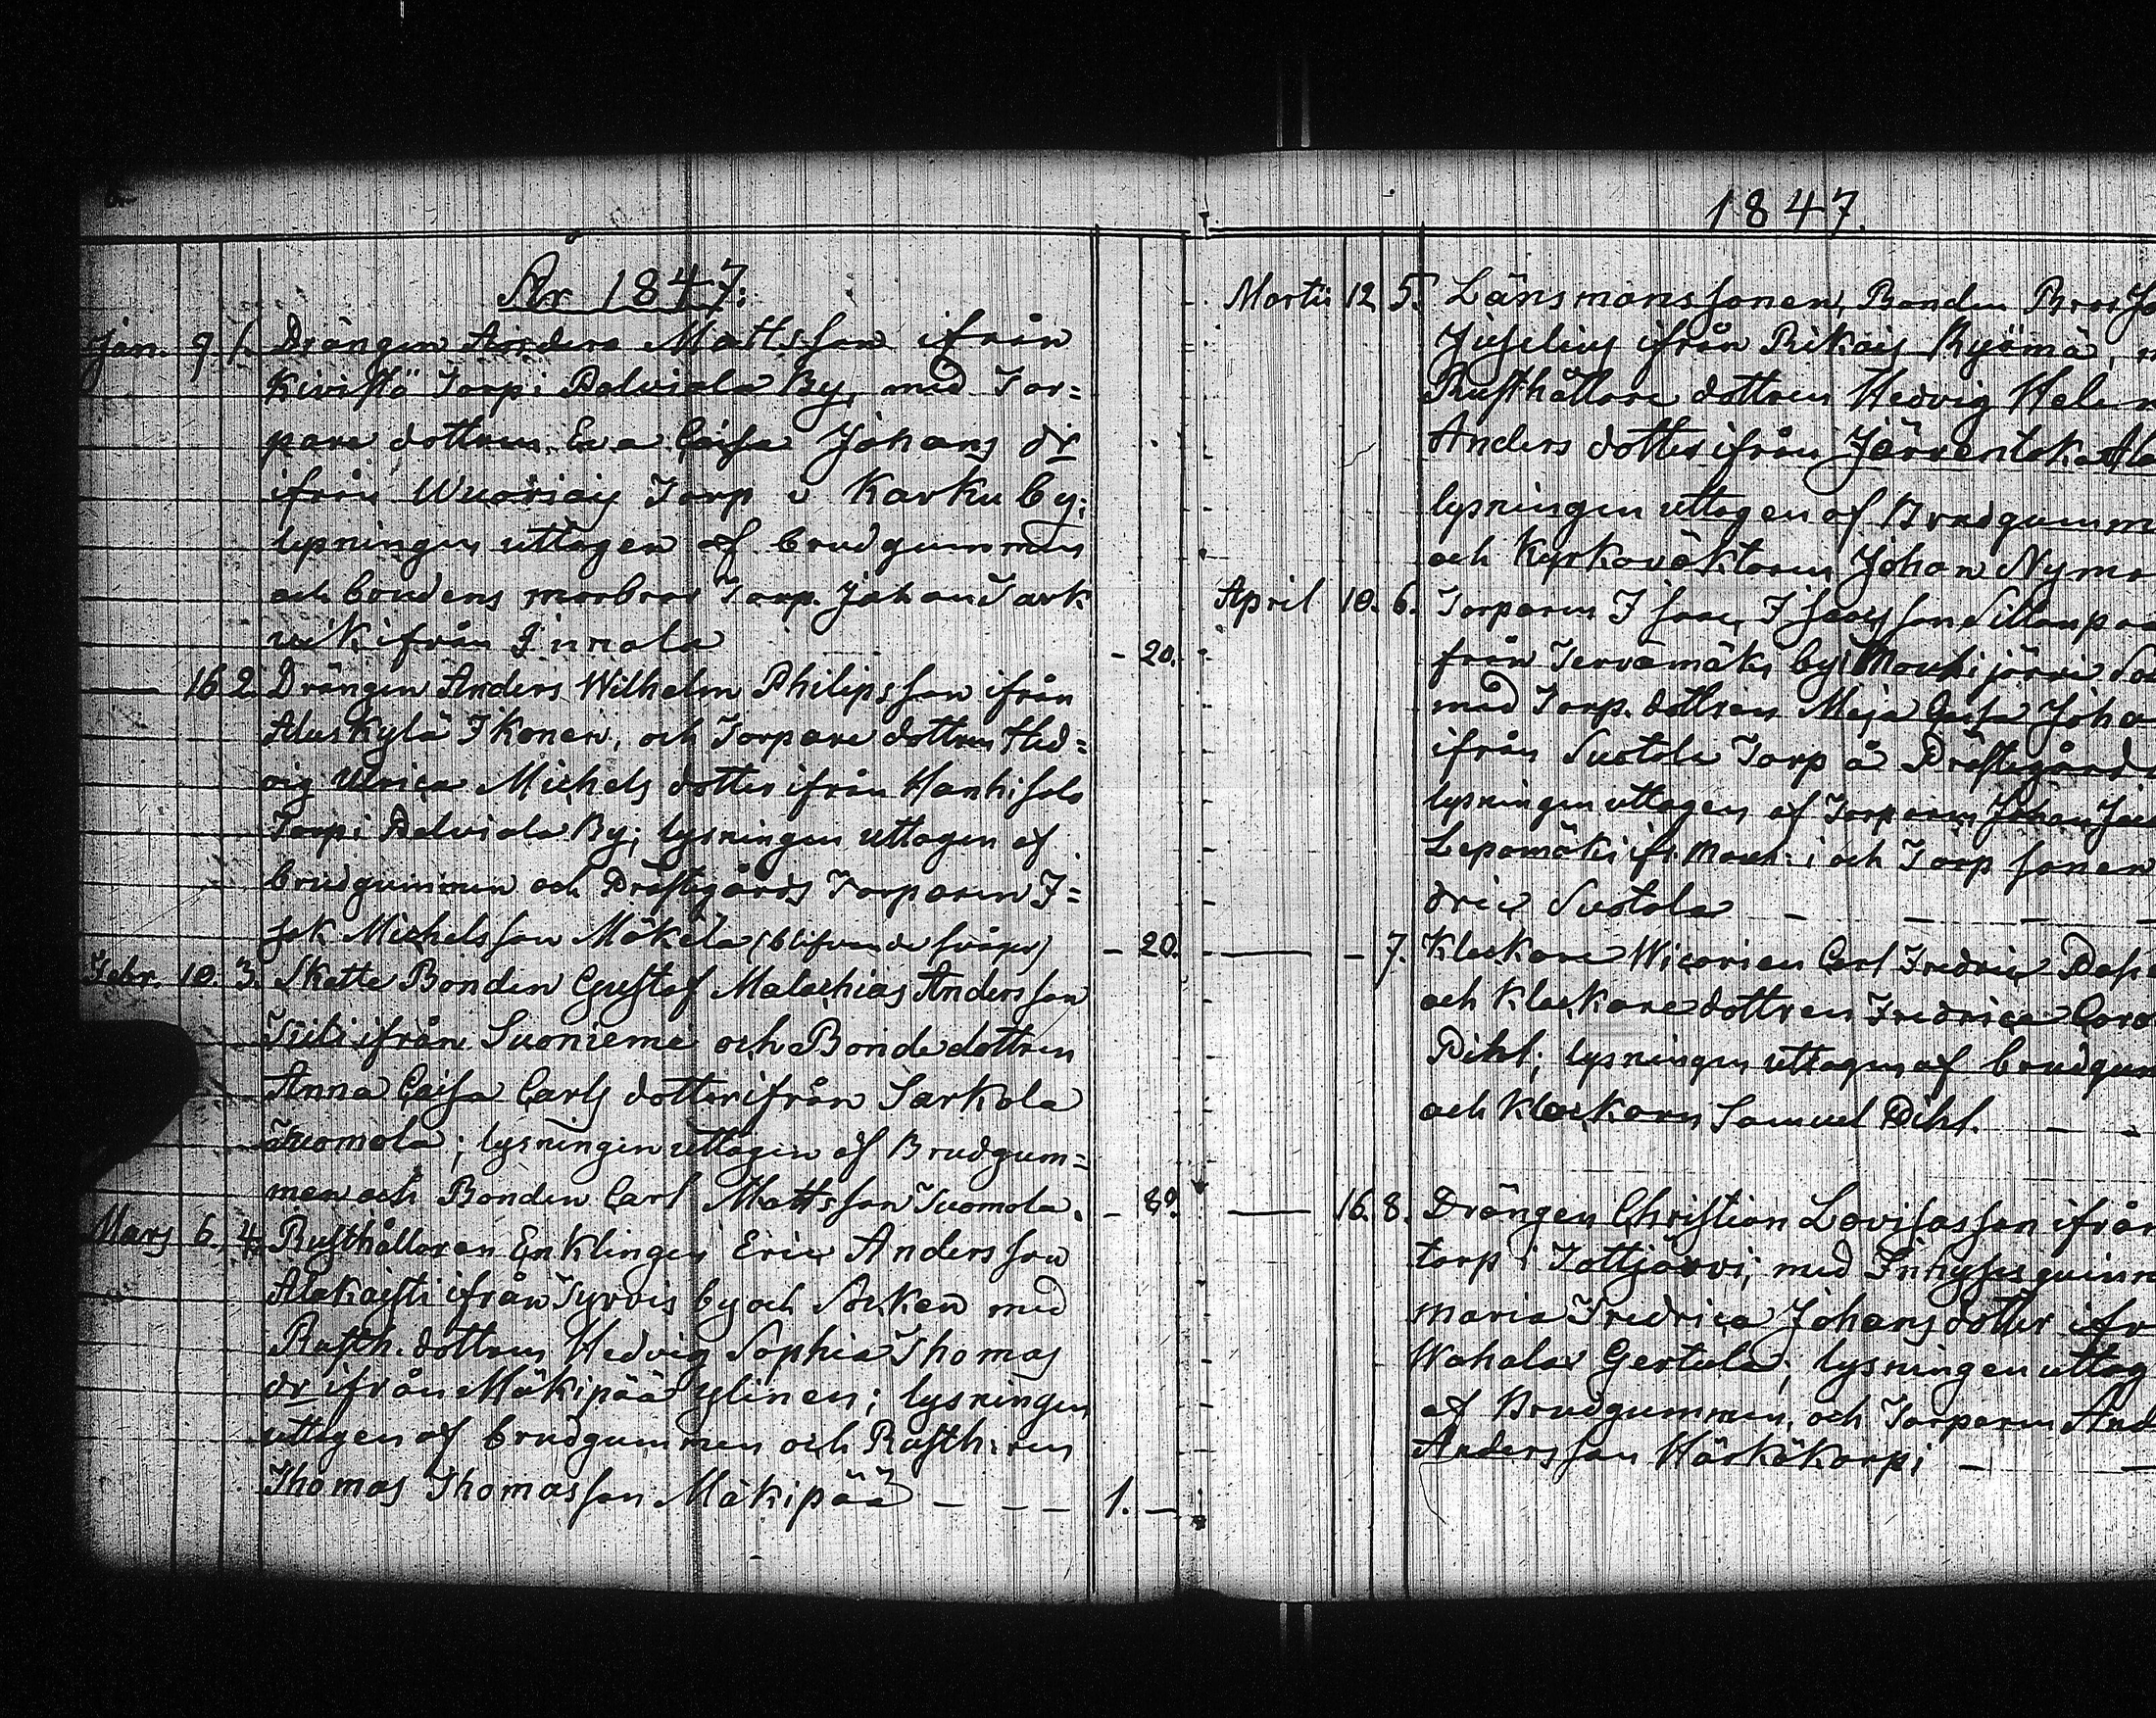 År 1847.
Jan. 9 1. Drängen Anders Mattsson ifrån
Kivistö Torp i Palviala By, med Tor=
pare dottren Eva Caisa Johans dr
ifrån Wuoriais Torp i Karku by;
lysningen uttagen af brudgummen
och brudens morbror Torp. Johan
ifrån Innala - 20.
— 16 2. Drängen Anders Wilhelm Philipsson ifrån
Aluskylä Ikonen, och Torpare dottren Hed=
vig Ulrica Michels dotter ifrån Hanhisalo
Torp i Palviala By; lysningen uttagen af
brudgummen och Prästgårds Torparen I=
sak Michelsson Mäkelä (blifvande svåger) - 20.
Febr. 10. 3. Skatte Bonden Gustaf Malachias Andersson
ifrån Suonieme och Bondedottren
Anna Caisa Carls dotter ifrån Sarkola
Tuomola; lysningen uttagen af Brudgum=
men och Bonden Carl Mattsson Tuomola. - 80.
Mars 6. 4. Rusthållaren Enklingen Eric Andersson
Alakaisti ifrån Tyrvis by och Socken med
Rusth. dottren Hedvig Sophia Thomas
dr ifrån Mäkipää Ylinen; lysningen
uttagen af brudgummen och Rusth:ren
Thomas Thomasson Mäkipää - - - 1. —
1847.
Martii 12 5. Länsmanssonen, Bonden
Juselius ifrån Rikais Kyömä,
Rusthållare dottren Hedvig
Anders dotter ifrån Järventaka
lysningen uttagen af
och Kyrkoväktaren Johan
April 10. 6. Torparen Isaac Isacsson
från Tervamäki by i Mouhijärvi
med Torp. dottren Maja Caisa
ifrån Suotala Torp å
lysningen uttagen af Torparen Johan
Lepamäki ifr. Mouh:i och Torp sonen
dric Suotala - - - -
— - 7. Klockare Wicarien Carl Fredric
och Klockare dottren Fredrica
Pihl; lysningen uttagen af
och Klockaren Samuel Pihl. - -
— 16. 8. Drängen Christian Lovisasson
torp i Tottijärvi, med
Maria Fredrica Johans dotter
Wahala Gertula; lysningen
af Brudgummen, och Torparen
Andersson Härkäkorpi - —